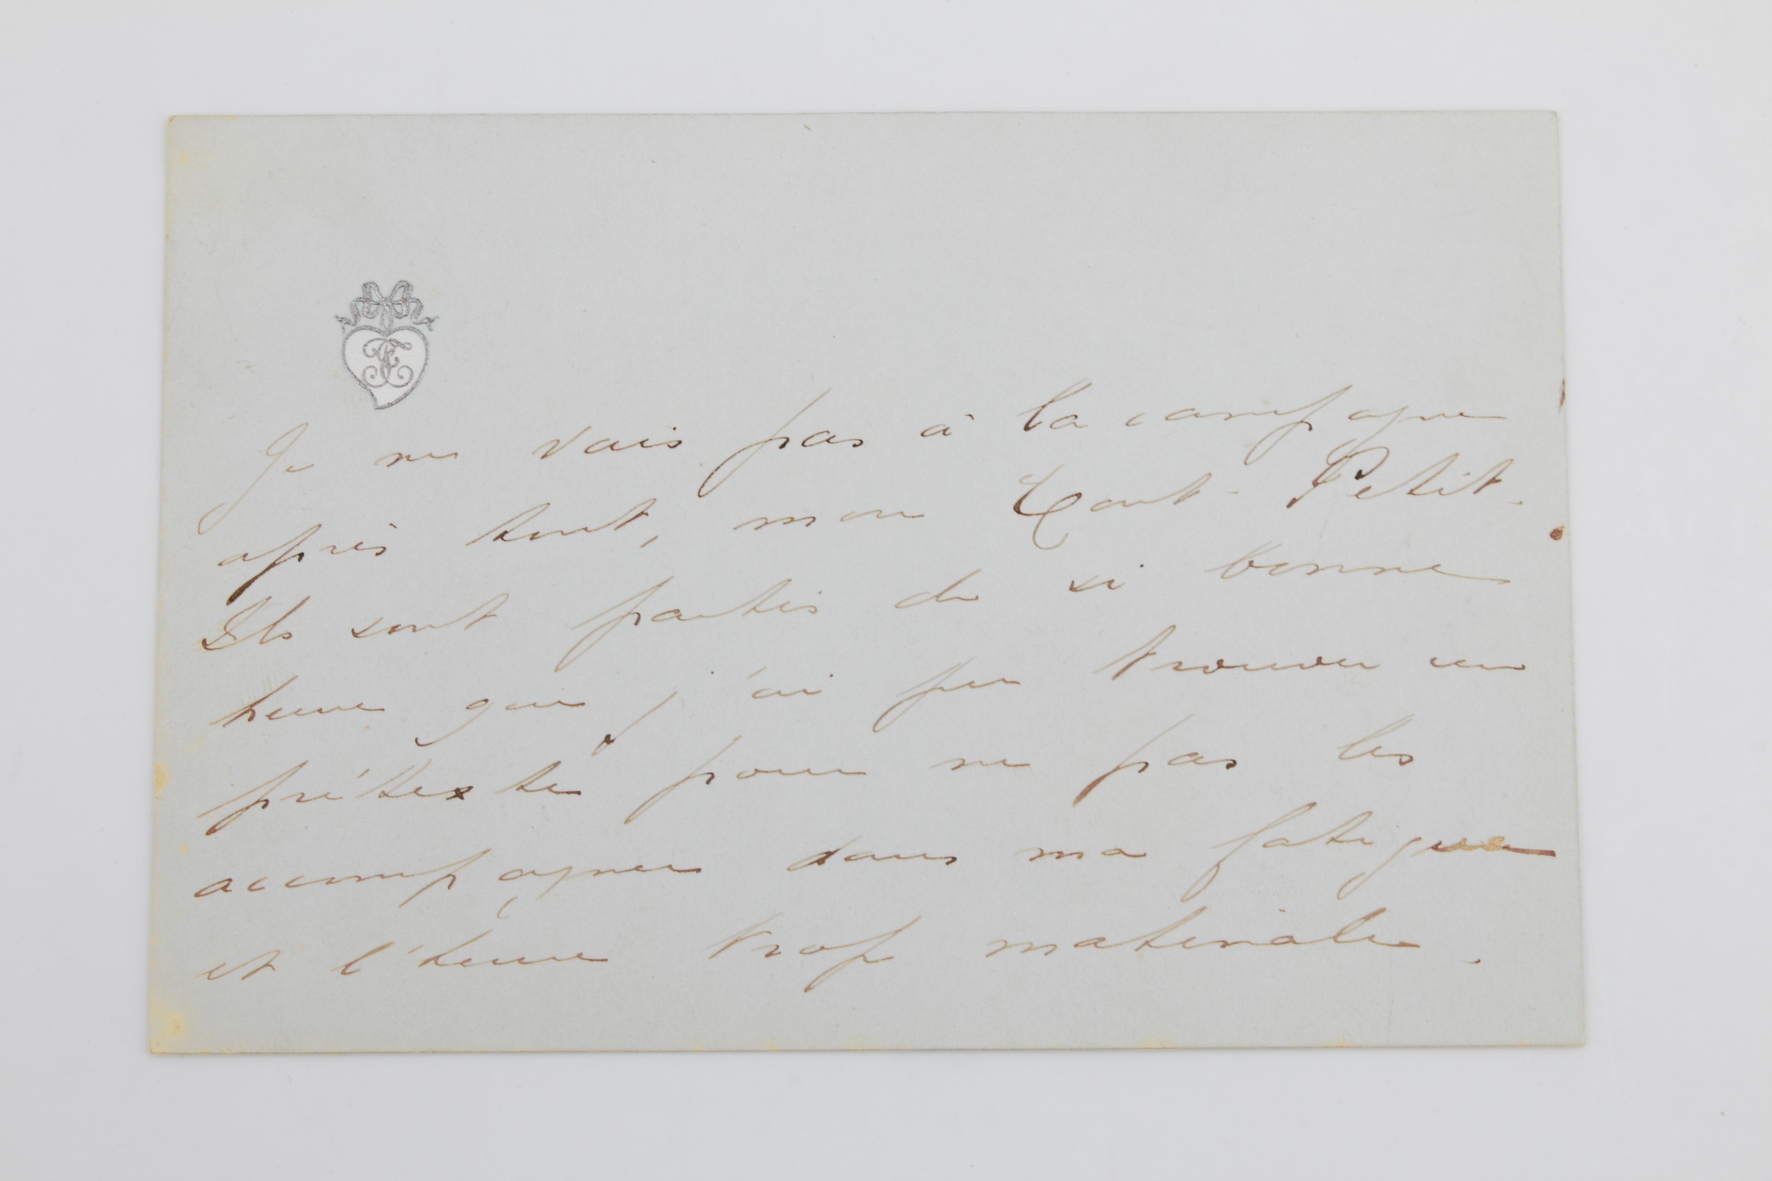 Je ne vais pas à la campagne
après tout, mon Tout-Petit.
Ils sont partis de si bonne
heure que j'ai pu trouver un
prétexte pour ne pas les
accompagner dans ma fatigue
et l'heure trop matinale.